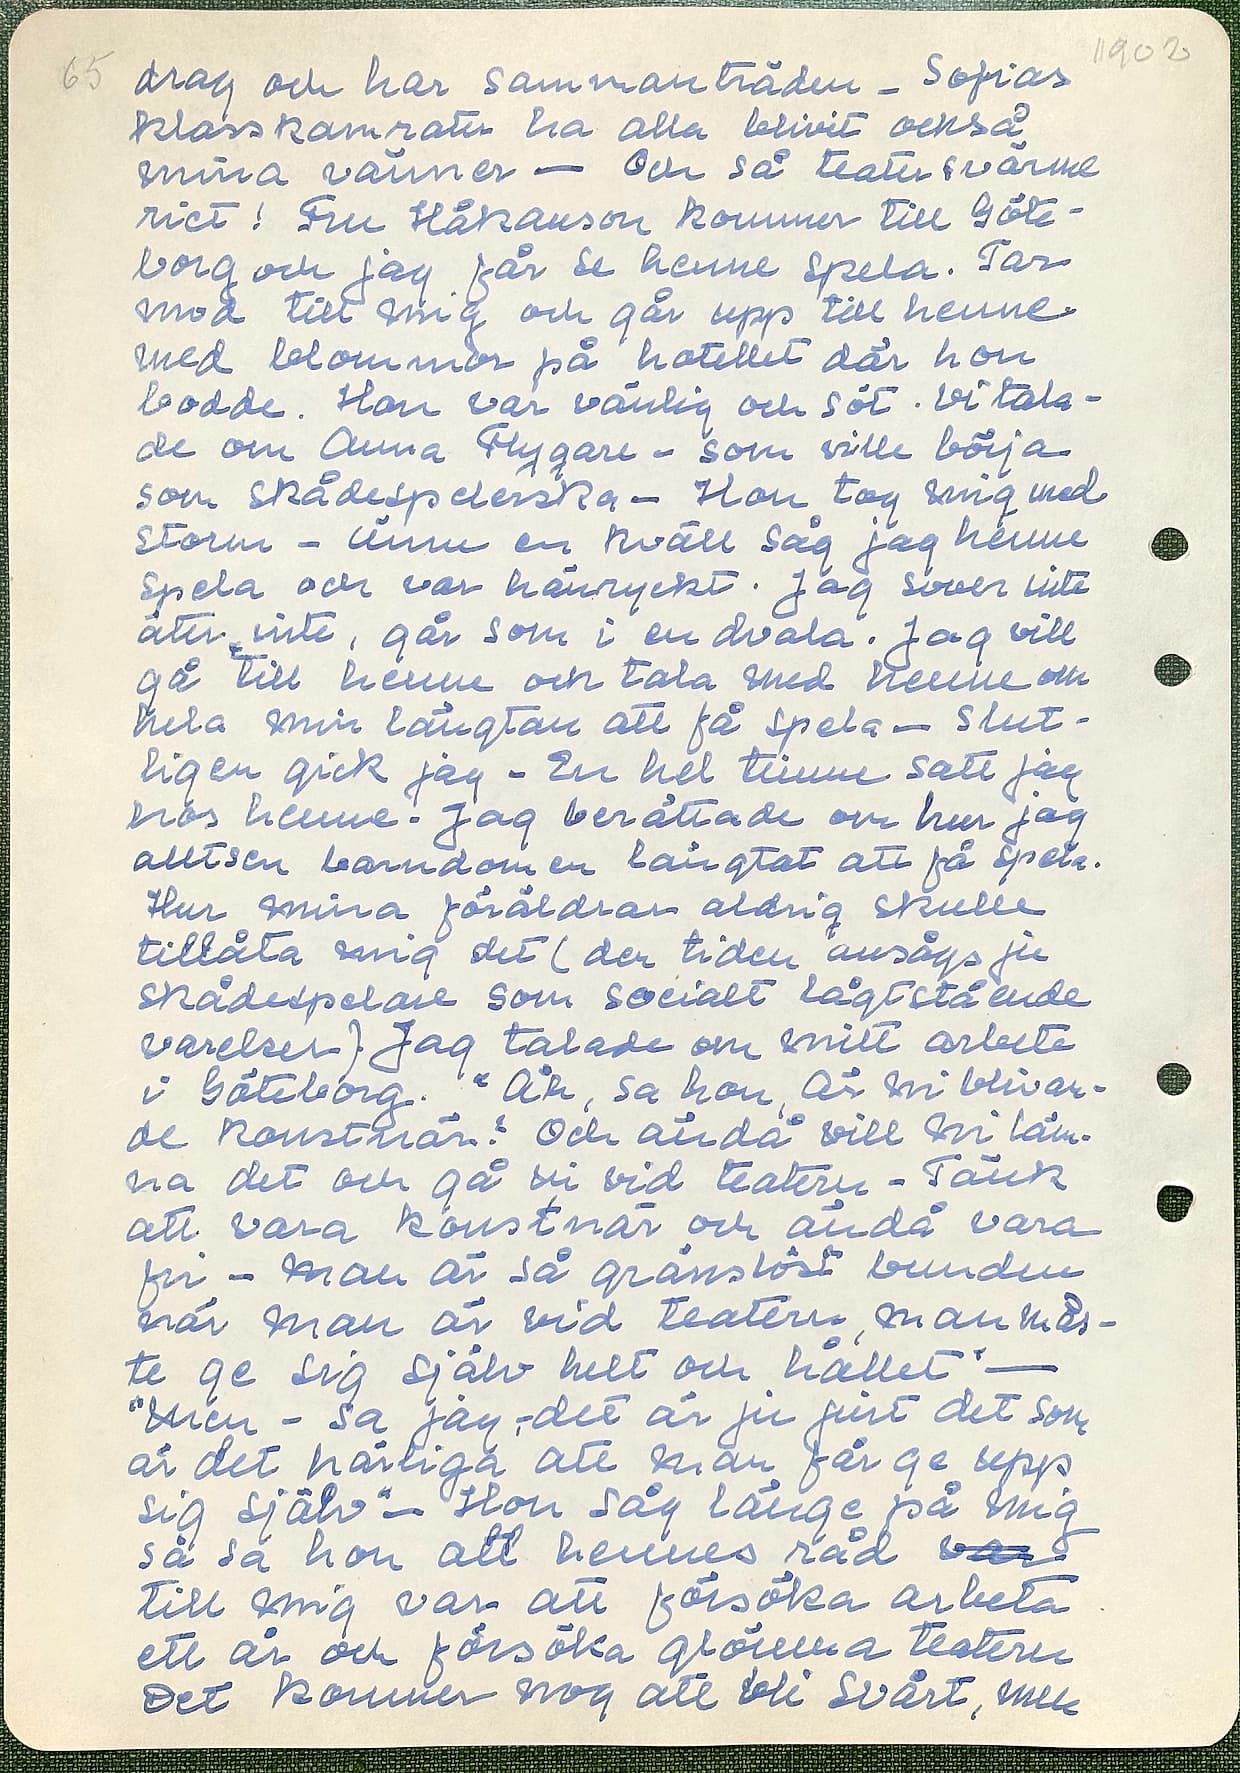 65
1902
drag och har sammanträden – Sofias
klasskamrater ha alla blivit också
mina vänner – Och så teatersvärme
riet! Fru Håkanson kommer till Göte-
borg och jag får se henne spela. Tar
mod till mig och går upp till henne
med blommor på hotellet där hon
bodde. Hon var vänlig och söt. Vi tala-
de om Anna Flygare – som ville börja
som skådespelerska – Hon tog mig med
storm – Ännu en kväll såg jag henne
spela och var hänryckt. Jag sover inte
äter inte, går som i en dvala. Jag vill
gå till henne och tala med henne om
hela min längtan att få spela – Slut-
ligen gick jag – En hel timme satt jag
hos henne. Jag berättade om hur jag
alltsen barndomen längtat att få spela.
Hur mina föräldrar aldrig skulle
tillåta mig det (den tiden ansågs ju
skådespelare som socialt lågtstående
varelser). Jag talade om mitt arbete
i Göteborg. "Åh, sa hon, Är Ni blivan-
de konstnär! Och ändå vill Ni läm-
na det och gå in vid teatern – Tänk
att vara konstnär och ändå vara
fri – man är så gränslöst bunden
när man är vid teatern, man mås-
te ge sig själv helt och hållet" –
"Men – sa jag, – det är ju just det som
är det härliga att man får ge upp
sig själv" – Hon såg länge på mig
så sa hon att hennes råd var
till mig var att försöka arbeta
ett år och försöka glömma teatern
Det kommer nog att bli svårt, men